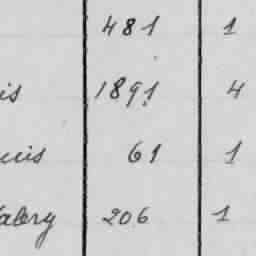 481 1
is 1891 4
uis 61 1
alery 206 1